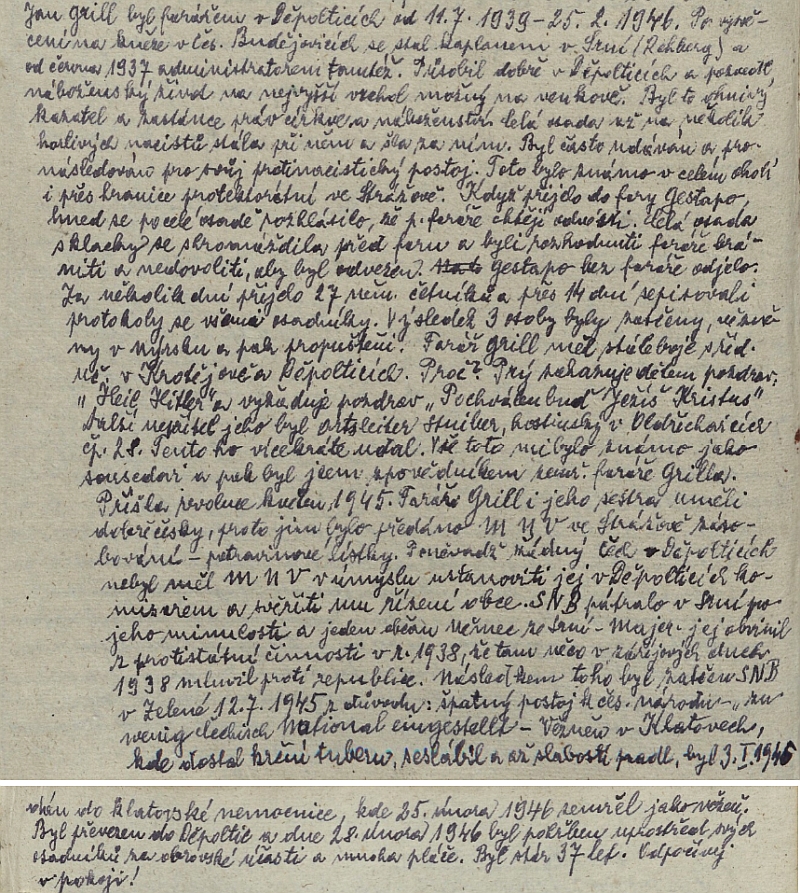 Jan Grill byl farářem v Děpolticích od 11.7. 1939 – 25. 2. 1946. Po vysvě-
cení na kněze v Čes. Budějovicích se stal kaplanem v Srní (Rehberg) a
od června 1937 administrátorem tamtéž. Působil dobře v Děpolticích a pozvedl
náboženský život na nejvyšší vrchol možný na venkově. Byl to ohnivý
kazatel a zastánce práv církve a náboženství. Celá osada až na několik
horlivých nacistů stála při něm a šla za ním. Byl často udáván a pro-
následován pro svůj protinacistický postoj. Toto bylo známo v celém okolí
i přes hranice protektorátní ve Strážově. Když přijelo do fary Gestapo,
hned se po celé osadě rozhlásilo, že p. faráře chtějí odvésti. Celá osada
se shromáždila před farou a byli rozhodnuti faráře brá-
niti a nedovoliti, aby byl odvezen. Gestapo bez faráře odjelo.
Za několik dní přijelo 27 něm. četníků a přes 14 dní sepisovali
protokoly se všemi osadníky. Výsledek 3 osoby byly zatčeny, vězně-
ny v Nýrsku a pak propuštěni. Farář Grill měl stále boje s řed.
něm. v Hrotějově a Děpolticích. Proč? Prý zakazuje dětem pozdrav,
"Heil Hitler" a vyžaduje pozdrav „Pochválen buď Ježíš Kristus"
Další nepřítel jeho byl ortsleiter Stuiber, hostinský v Oldřichovicích
čp. 28. Tento ho vícekráte udal. Vše toto mi bylo známo jako
sousedovi a pak byl jsem zpovědníkem zemř. faráře Grilla.
Přišla revoluce květen 1945. Farář Grill i jeho sestra uměli
dobře česky, proto jim bylo předáno M N V ve Strážově záso-
bování – potravinové lístky. Poněvadž žádný Čech v Děpolticích
nebyl měl M N V v úmyslu ustanoviti jej v Děpolticích ko-
misařem a svěřiti mu řízení obce. SNB pátralo v Srní po
jeho minulosti a jeden občan Němec ze Srní – Majer – jej obvinil
z protistátní činnosti v r. 1938, že tam něco v zářijových dnech
1938 mluvil proti republice. Následkem toho byl zatčen SNB
v Zelené 12.7. 1945 z důvodu: špatný postoj k čes. národu – „zu
wenig čechisch National eingestellt – Vězněn v Klatovech,
kde dostal krční tuberu, seslábl a až slabostí padl, byl 3. I. 1946
dán do klatovské nemocnice, kde 25. února 1946 zemřel jako vězeň.
Byl převezen do Děpoltic a dne 28. února 1946 byl pohřben uprostřed svých
osadníků za obrovské účasti a mnoha pláče. Byl stár 37 let. Odpočívej
v pokoji!